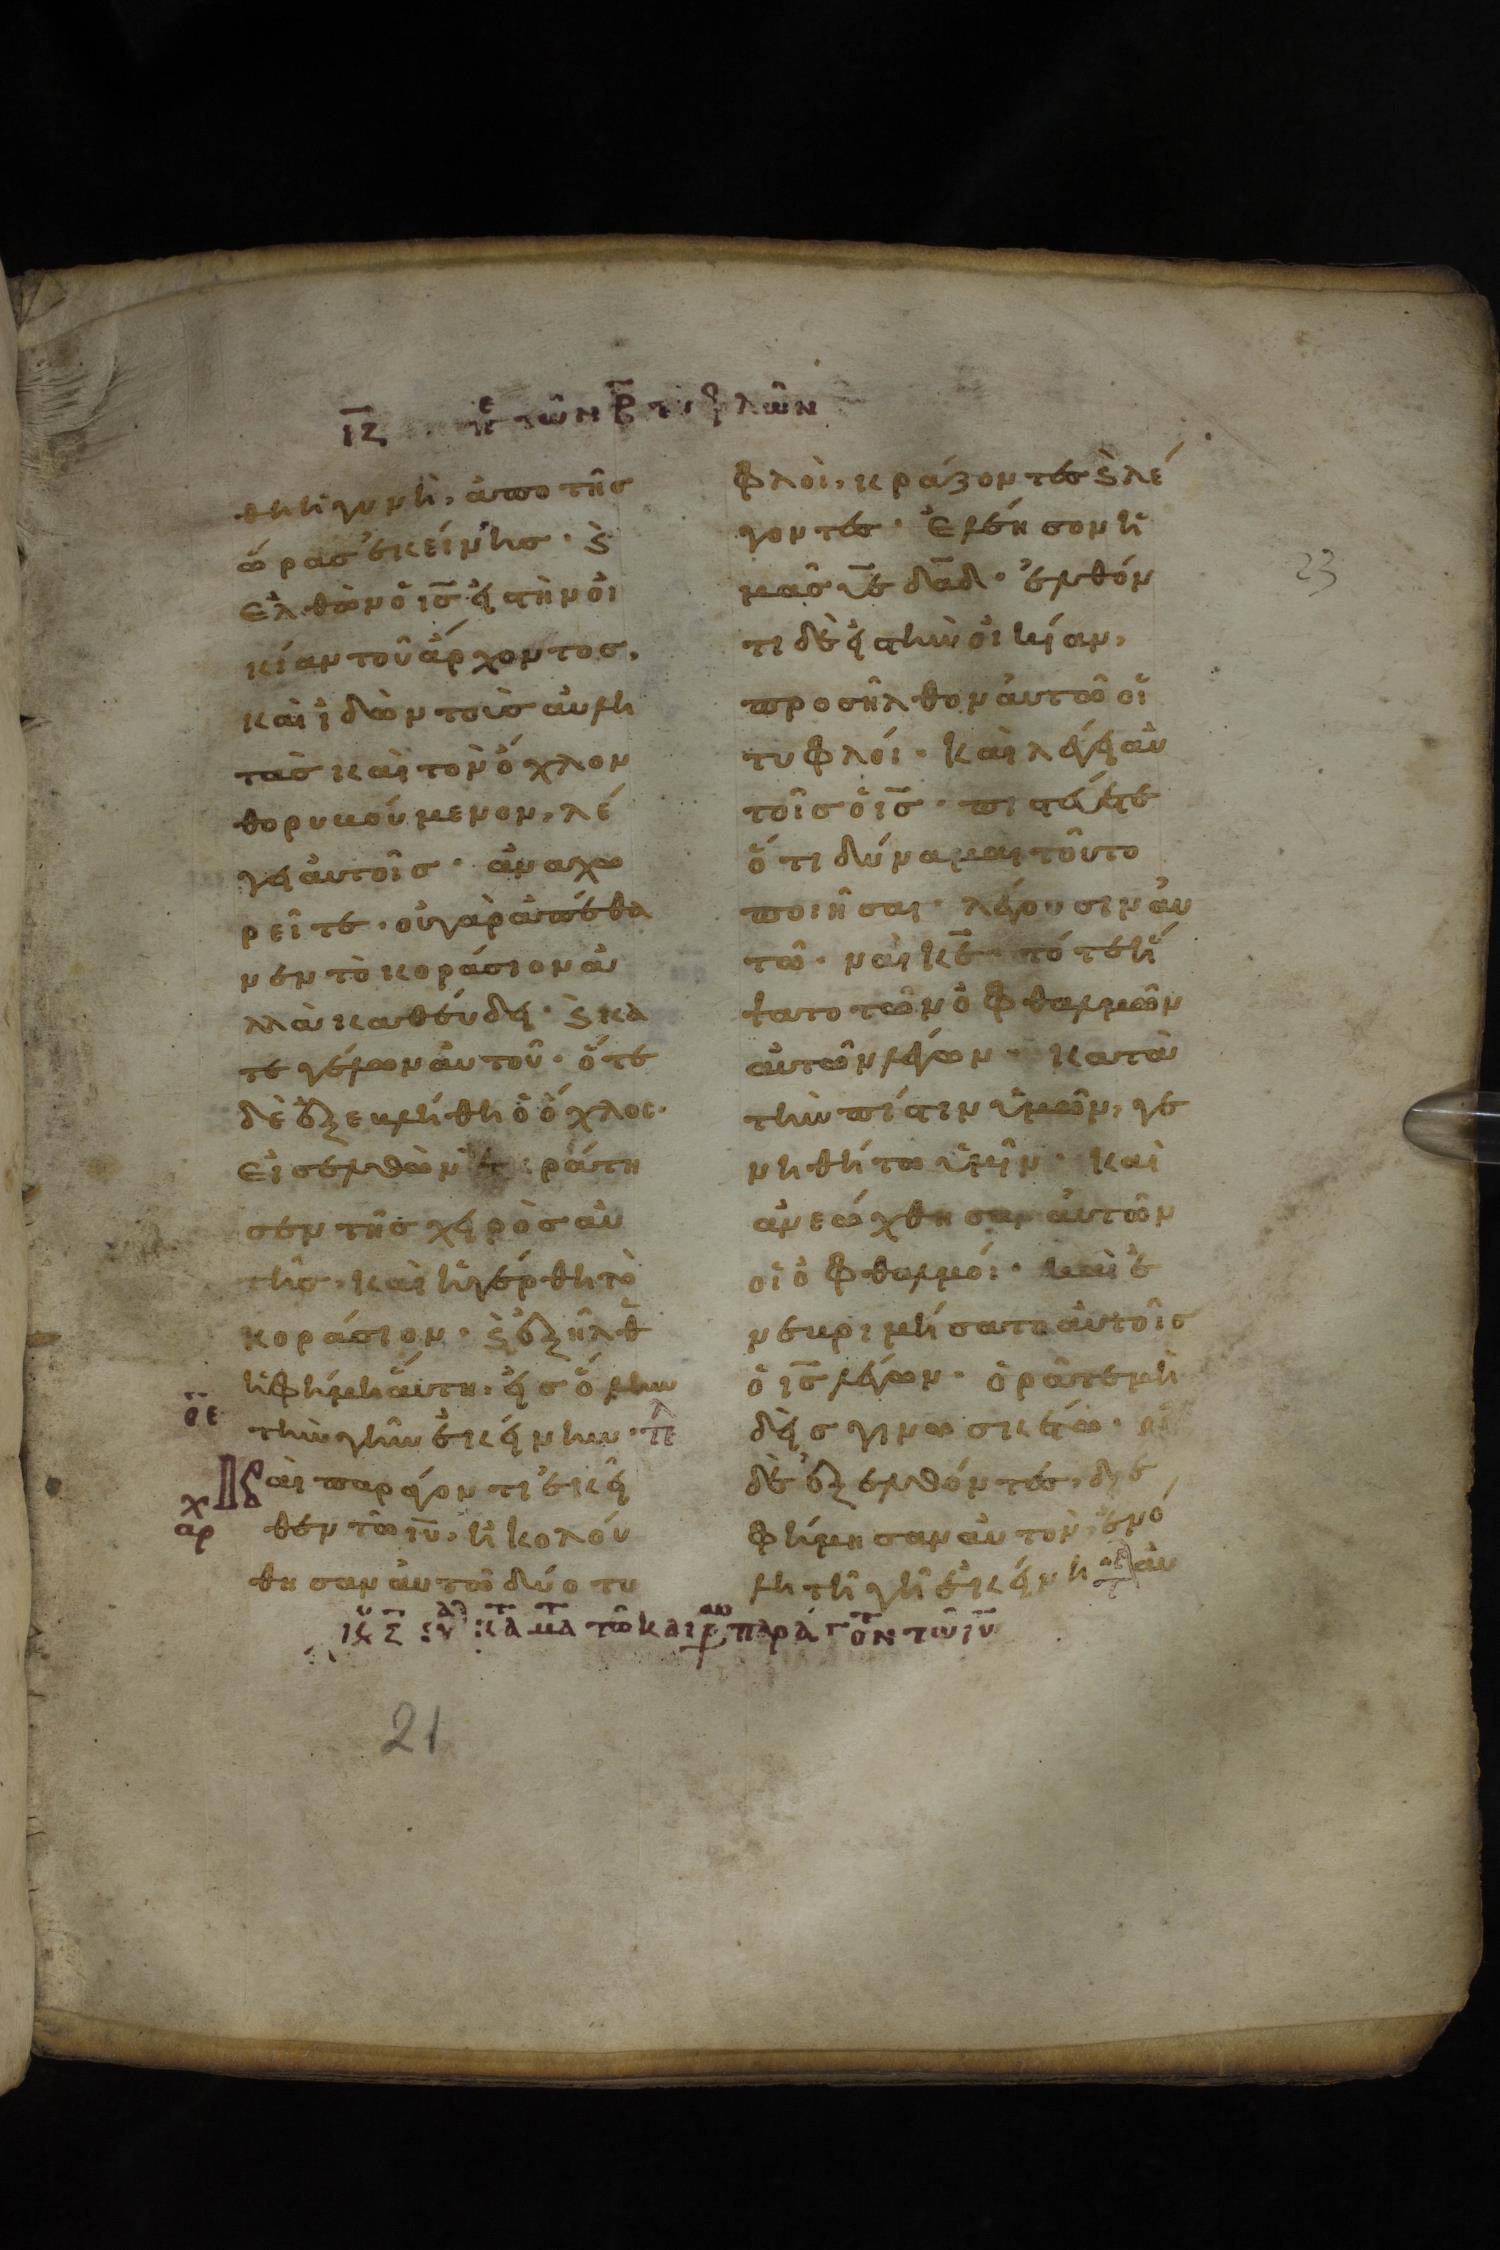 ιζ πε τῶν β τυφλῶν
θη ἡ γυνὴ, ἀπο τῆσ
ὥρασ ἐκείνησ · ϗ
ἐλθὼν ὁ ις εἰς τὴν οἰ
κίαν τοῦ ἄρχοντοσ,
καὶ ἰδὼν τοὺσ αὐλη
τὰσ καὶ τὸν ὄχλον
θορυβούμενον, λέ
γει αὐτοῖσ · ἀναχω
ρεῖτε · οὐ γὰρ ἀπέθα
νεν τὸ κοράσιον ἀ
λλὰ καθεύδει · ϗ κα
τεγέλων αὐτοῦ · ὅτε
δὲ ἐξεβλήθη ὁ ὄχλος ·
εἰσελθὼν ἐκράτη
σεν τῆσ χειρὸσ αὐ
τῆσ, καὶ ἠγέρθη τὸ
κοράσιον · ϗ ἐξῆλθ
ἡ φήμη αὕτη, εἰσ ὅλην
τὴν γῆν ἐκείνην · τε
οε
Και παράγοντι ἐκεῖ
χ
αρ
θεν τῶ ιυ, ἠκολού
θησαν αὐτῶ δύο τυ
φλοὶ, κράζοντεσ ϗ λέ
γοντεσ · ἐλέησον ἡ
μᾶσ υε δαδ · ἐλθόν
τι δὲ εἰς τὴν οἰκίαν,
προσῆλθον αὐτῶ οἱ
τυφλοί · καὶ λέγει αὐ
τοῖσ ὁ ις · πιστεύετε
ὅτι δύναμαι τοῦτο
ποιῆσαι · λέγουσιν αὐ
τῶ · ναὶ κε · τότε ἥ
ψατο τῶν ὀφθαλμῶν
αὐτῶν λέγων · κατὰ
τὴν πίστιν ὑμῶν, γε
νηθήτω ὑμῖν · καὶ
ἀνεώχθησαν αὐτῶν
οἱ ὀφθαλμοί · καὶ ἐ
νεβριμήσατο αὐτοῖσ
ὁ ις λέγων · ὁρᾶτε μὴ
δεὶσ γινωσκέτω · οἱ
δὲ ἐξελθόντεσ, διε
φήμησαν αὐτὸν, ἐν ὅ
λη τῆ γῆ ἐκείνη · αὐ
κυ ζ ευ κατα ματ τῶ καιρῶ παράγοντ τῶ ιυ
21
23